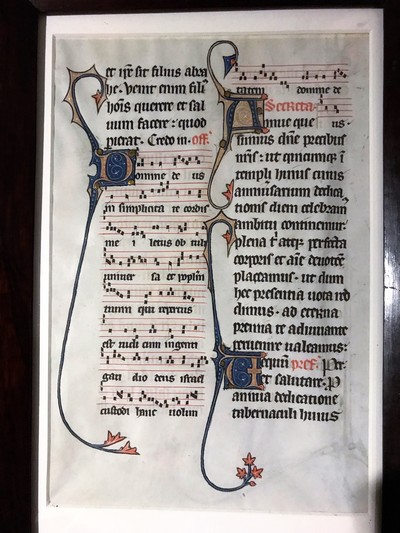 et ip̄e sit filius abra
he. Venit enim fili
hoīs querere et sal
uum facere: quod
pierat. Credo in. off.
Domine de us
in simplicita te cordis
me i letus ob tuli
uniuer sa et pp̄lm
tuum qui repertus
est uidi cum ingenti
gau dio deus israel
custodi hanc uolun
tatem domine de
Secreta.
Annue que us
sumus dn̄e precibus
nr̄is: ut quicumqȝ ī
templi huius cuius
anniuersarium dedica
tionis diem celebram
ambitu continemur
plena t̄ atqȝ perfecta
corporis et aīe deuotōe
placeamus. ut dum
hec presentia uota red
dimus. ad eterna
premia te adiuuante
peruenire ualeamus:
equm pref. Per
Et salutare. P
annua dedicatione
tabernaculi huius